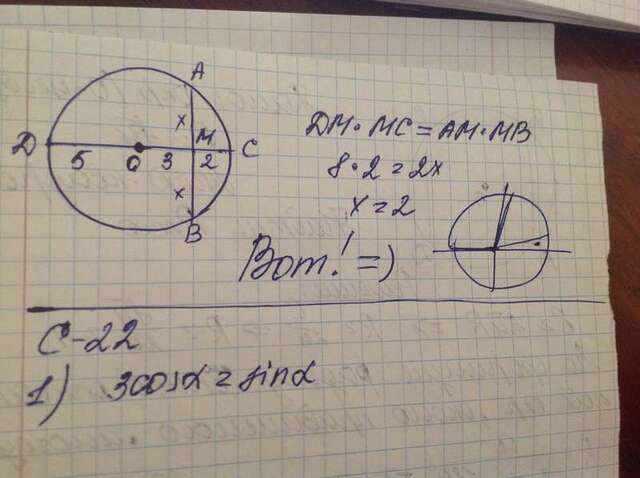 A
x
D 5 O 3 M 2 C
x
B
DM · MC = AM · MB
8 · 2 = 2x
x = 2
Вот! =)
С-22
1) 3cosα = sinα